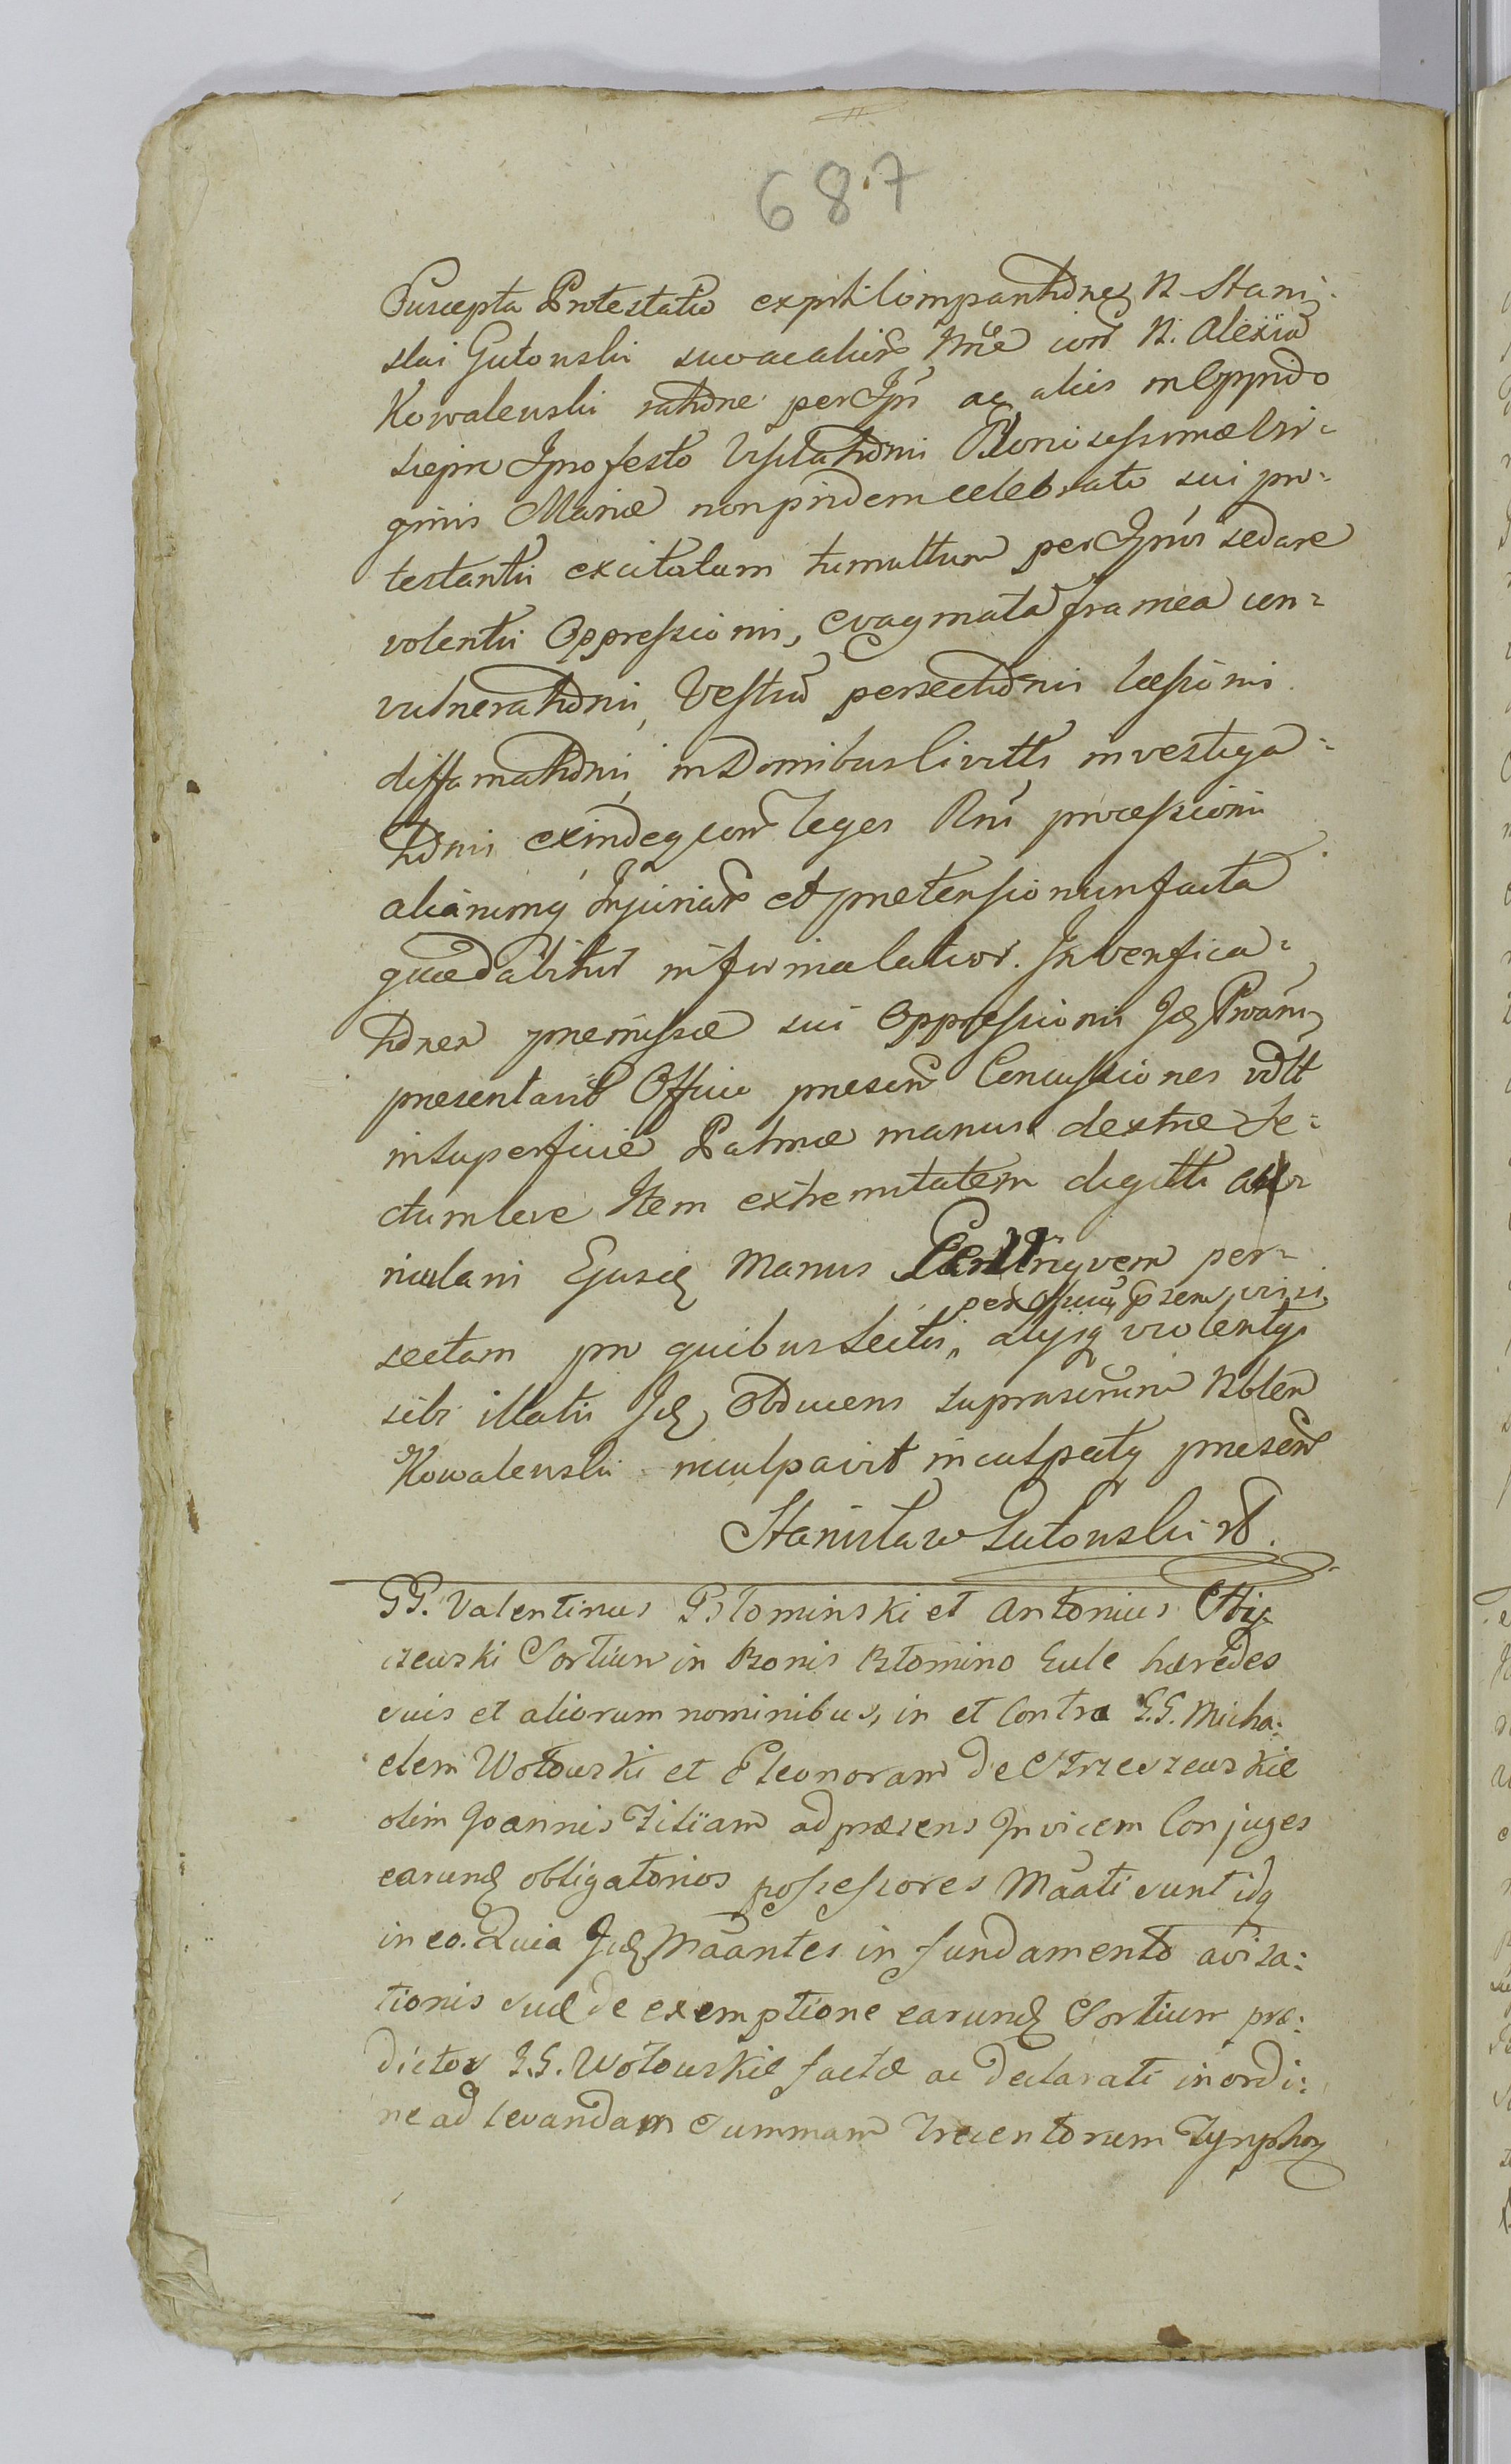 687
Suscepta Protestatio ex pnti Comparitione N. Stani
slai Gutowski suo ac alior nne con N. Alexiū
Kowalewski ratione per Ipm ac alios in Oppido
Siepin Ipso festo Visitationis Gloriosissimæ Vir=
ginis Mariæ non pridem celebrato sui pro=
testantis excitatum tumultum per Ipsūs sedare
volentis Oppressionis, evaginata framea con=
vulnerationis, Vestiū persectionis læsionis
diffamationis, in Domibus Civittis investiga=
tionis exindeq con Leges Rni processionis
aliarumq Injuriar et prætensionum facta
quæ dabitur in formæ latior. In verifica=
tionem præmissæ sui Oppressionis Id Protans
præsentavit Officio præsen Concussiones vdtt
in superficie Palmæ manus dextræ Se=
ctum leve Item extremitatem digitti au=
ricularis Ejusd Manus per=
sectam pro quibus Sectis, alysq violentys
per Officiū præsen visis
sibi illatis Id, Obducens suprascriptum Nblem
Kowalewski inculpavit inculpatq præsen
Stanisław Gutowski
GG. Valentinus Błominski et Antonius
szewski Sortium in Bonis Błomino Gule hæredes
suis et aliorum nominibus, in et Contra G.G. Micha:
elem Wołowski et Eleonoram de Strzeszewskie
olim Joannis Filiam ad præsens Invicem Conjuges
earund obligatorios possessores Maati sunt idq
in eo. Quia Iid Maantes in fundamento aviza:
tionis suæ de exemptione earund Sortium præ:
dictos G.G. Wołowskie factæ ac declarati in ordi:
ne ad levandam Summam Trecentorum Tynphor